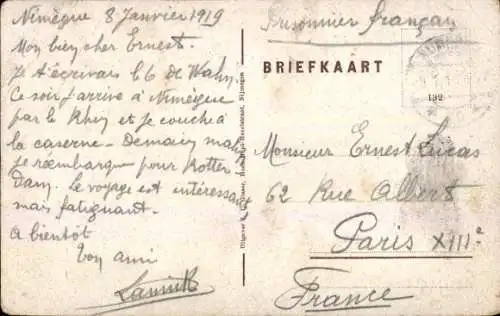 Nimègue 8 Janvier 1919
Mon bien cher Ernest.
Je t'écrivais le 6 de Wahn.
Ce soir j'arrive à Nimègue
par le Rhin et je couche à
la caserne - Demain matin
je rembarque pour Rotter
dam. Le voyage est intéressant
mais fatiguant.
A bientôt
ton ami
Prisonnier français
BRIEFKAART
132
Monsieur Ernest Lucas
62 Rue Albert
Paris XIIIe
France